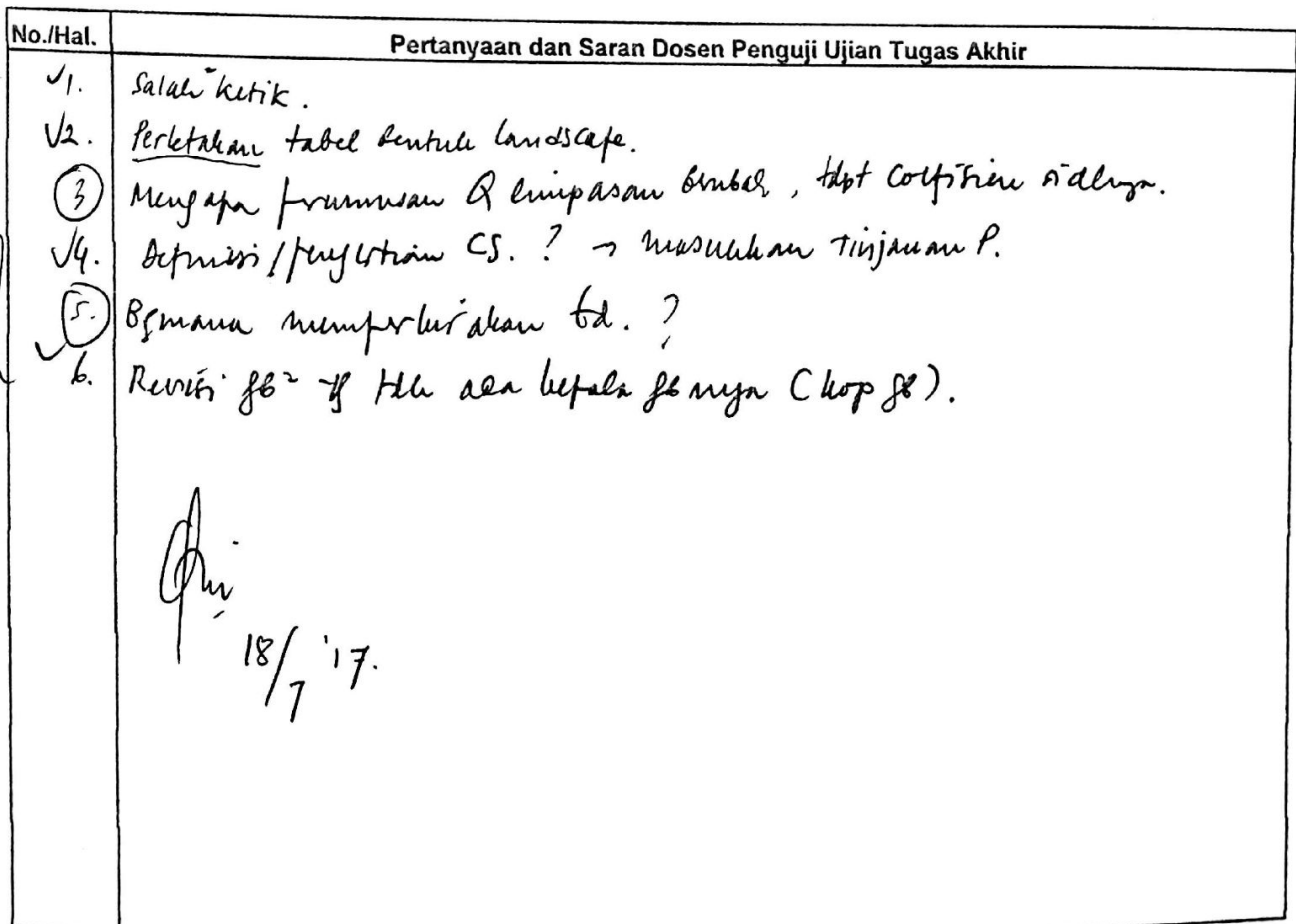 No./Hal.
Pertanyaan dan Saran Dosen Penguji Ujian Tugas Akhir
√1. Salah² ketik.
√2. Perletakan tabel bentuk landscape.
3 Mengapa perumusan Q limpasan berubah, tdpt
√4. Definisi/pengertian CS. ? → masukkan Tinjauan P.
5. Bgmana memperkirakan td. ?
√ 6. Revisi gb² yg tdk ada kepala gb nya (kop gb).
18/7 '17.